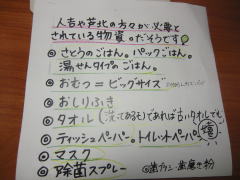 人吉や芦北の方々が必要と
されている物資。だそうです!
◎さとうのごはん。パックごはん。
湯せんタイプのごはん。
◎おむつ=ビッグサイズ
◎おしりふき
◎タオル(洗ってあるも)であれば古いタオルでも
◎ティッシュペーパー。トイレットペーパー。
◎マスク
◎除菌スプレー ◎歯ブラシ・歯磨き粉